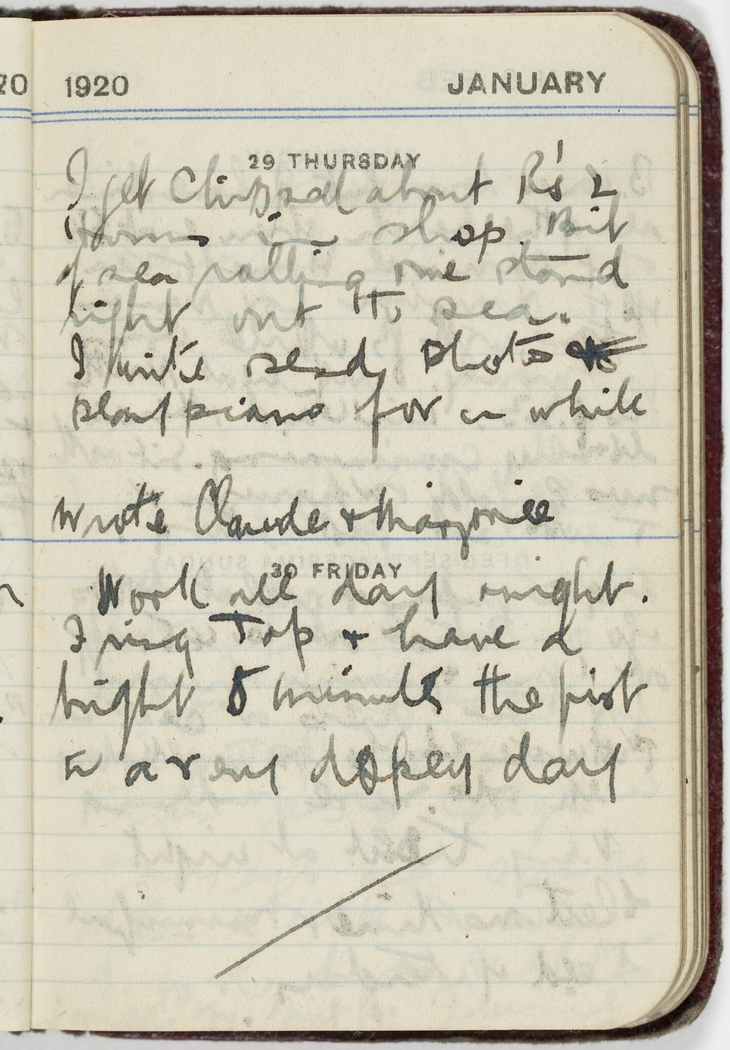 1920 JANUARY
29 THURSDAY
I get Chipped about R's 2
in shop. Bit
of sea rolling one stand
right out to sea.
I write send photo
play piano for a while
Wrote Claude + Marjorie
30 FRIDAY
Work all day & night.
I ring Top + have a
bright 5 minutes the first
in a very dopey day